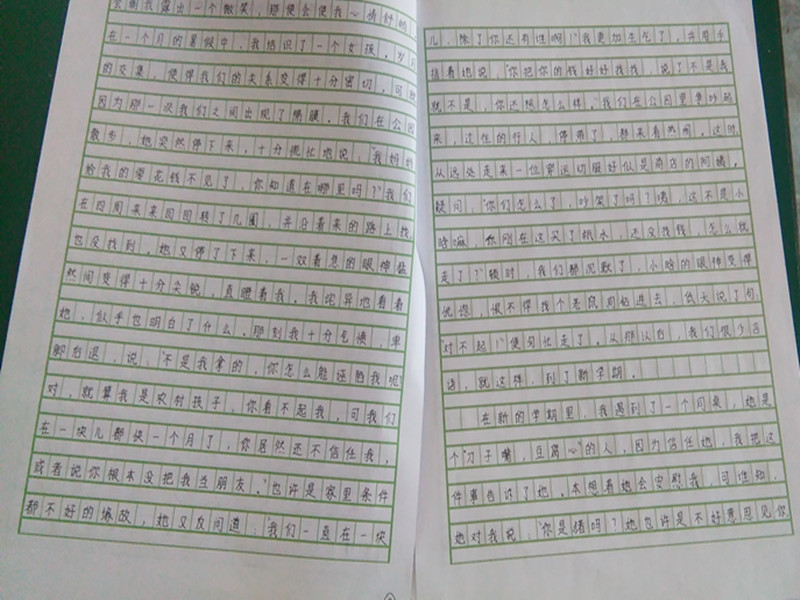 会朝我露出一个微笑，那便会使我心情舒畅
在一个月的暑假中，我结识了一个女孩，岁月
的交集，使得我们的关系变得十分密切，可就
因为那一次我们之间出现了隔膜。我们在公园
散步，她突然停下来，十分慌忙地说：“我妈妈
给我的零花钱不见了，你知道在哪里吗？”我们
在四周来来回回转了几圈，并沿着来的路上找，
也没找到。她又停了下来，一双着急的眼神猛
然间变得十分尖锐，直瞪着我。我诧异地看着
她，似乎也明白了什么。那刻我十分气愤，单
脚后退，说：“不是我拿的，你怎么能诬赖我呢
对，就算我是农村孩子，你看不起我，可我们
在一块儿都快一个月了，你居然还不信任我，
或者说你根本没把我当朋友。”也许是家里条件
都不好的缘故，她又反问道：“我们一直在一块
儿，除了你还有谁啊！”我更加生气了，并用手
指着她说，“你把你的钱好好找找，说了不是我
就不是，你还想怎么样。”我们在公园里争吵起
来，过往的行人，停滞了，都来看热闹。这时，
从远处走来一位穿运动服好似是商店的阿姨，
疑问：“你们怎么了，吵架了吗？咦，这不是小
晗嘛，你刚在这买了瓶水，还没找钱，怎么就
走了？”顿时，我们都沉默了，小晗的眼神变得
忧虑，恨不得找个老鼠洞钻进去，低头说了句
“对不起！”便匆忙走了。从那以后，我们很少言
语，就这样，到了新学期。
在新的学期里，我遇到了一个同桌，她是
个“刀子嘴，豆腐心”的人，因为信任她，我把这
件事告诉了她。本想着她会安慰我，可谁知，
她对我说：“你是猪吗？她也许是不好意思见你